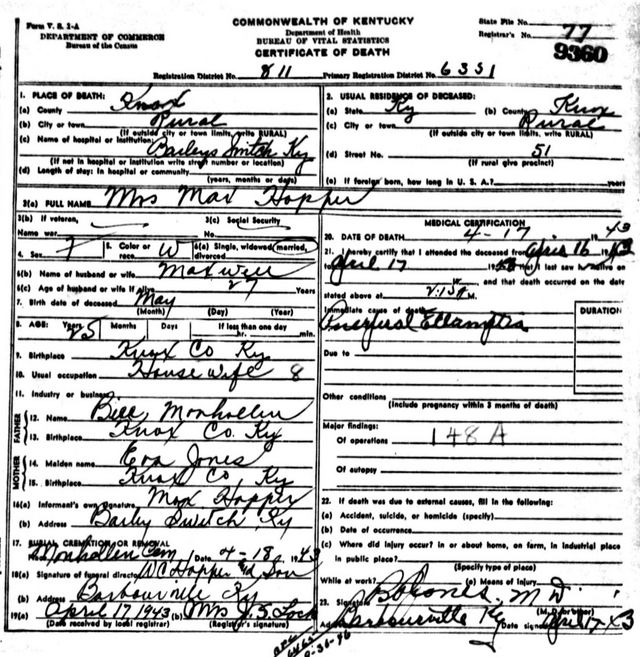 Form V. S. 1-A
DEPARTMENT OF COMMERCE
Bureau of the Census
COMMONWEALTH OF KENTUCKY
Department of Health
BUREAU OF VITAL STATISTICS
CERTIFICATE OF DEATH
State File No.
Registrar's No. 77
9360
Registration District No. 811 Primary Registration District No. 6331
1. PLACE OF DEATH:
(a) County Knox
(b) City or town Rural
(If outside city or town limits, write RURAL)
(c) Name of hospital or institution: Baileys Switch Ky
(If not in hospital or institution write street number or location)
(d) Length of stay: In hospital or community
(years, months or days)
2. USUAL RESIDENCE OF DECEASED:
(a) State Ky (b) County Knox
(c) City or town Rural
(If outside city or town limits, write RURAL)
(d) Street No. 51
(If rural give precinct)
(e) If foreign born, how long in U. S. A.? years
3(a) FULL NAME Mrs Max Hopper
3(b) If veteran,
Name war
3(c) Social Security
No.
4. Sex F
5. Color or race W
6(a) Single, widowed, married, divorced
6(b) Name of husband or wife Maxwell
6(c) Age of husband or wife if alive 27 Years
7. Birth date of deceased May
(Month) (Day) (Year)
8. AGE: Years 25 Months Days If less than one day
hr. min.
9. Birthplace Knox Co Ky
10. Usual occupation House wife 8
11. Industry or business
FATHER
12. Name Bill Monhollen
13. Birthplace Knox Co. Ky
MOTHER
14. Maiden name Eva Jones
15. Birthplace Knox Co Ky
16(a) Informant's own Signature Max Hopper
(b) Address Barley Switch Ky
17. BURIAL, CREMATION OR REMOVAL
Monhollen Cem Date 4-18, 1943
18(a) Signature of funeral director W C Hopper & Son
(b) Address Barbourville Ky
19(a) April 17 1943 (b) Mrs J. S. Lock
(Date received by local registrar) (Registrar's signature)
MEDICAL CERTIFICATION
20. DATE OF DEATH 4-17 1943
21. I hereby certify that I attended the deceased from April 16 1943
to April 17 1943 that I last saw alive on
, and that death occurred on the date
stated above at 2:15 A M.
Immediate cause of death
Puerperal Eclampsia
DURATION
Due to
Other conditions
(Include pregnancy within 3 months of death)
Major findings:
Of operations 148A
Of autopsy
22. If death was due to external causes, fill in the following:
(a) Accident, suicide, or homicide (specify)
(b) Date of occurrence
(c) Where did injury occur? In or about home, on farm, in industrial place
in public place?
(Specify type of place)
While at work? (e) Means of injury
23. Signature Jones, M D
(M. D. or other)
Address Barbourville Ky Date signed April 17-43